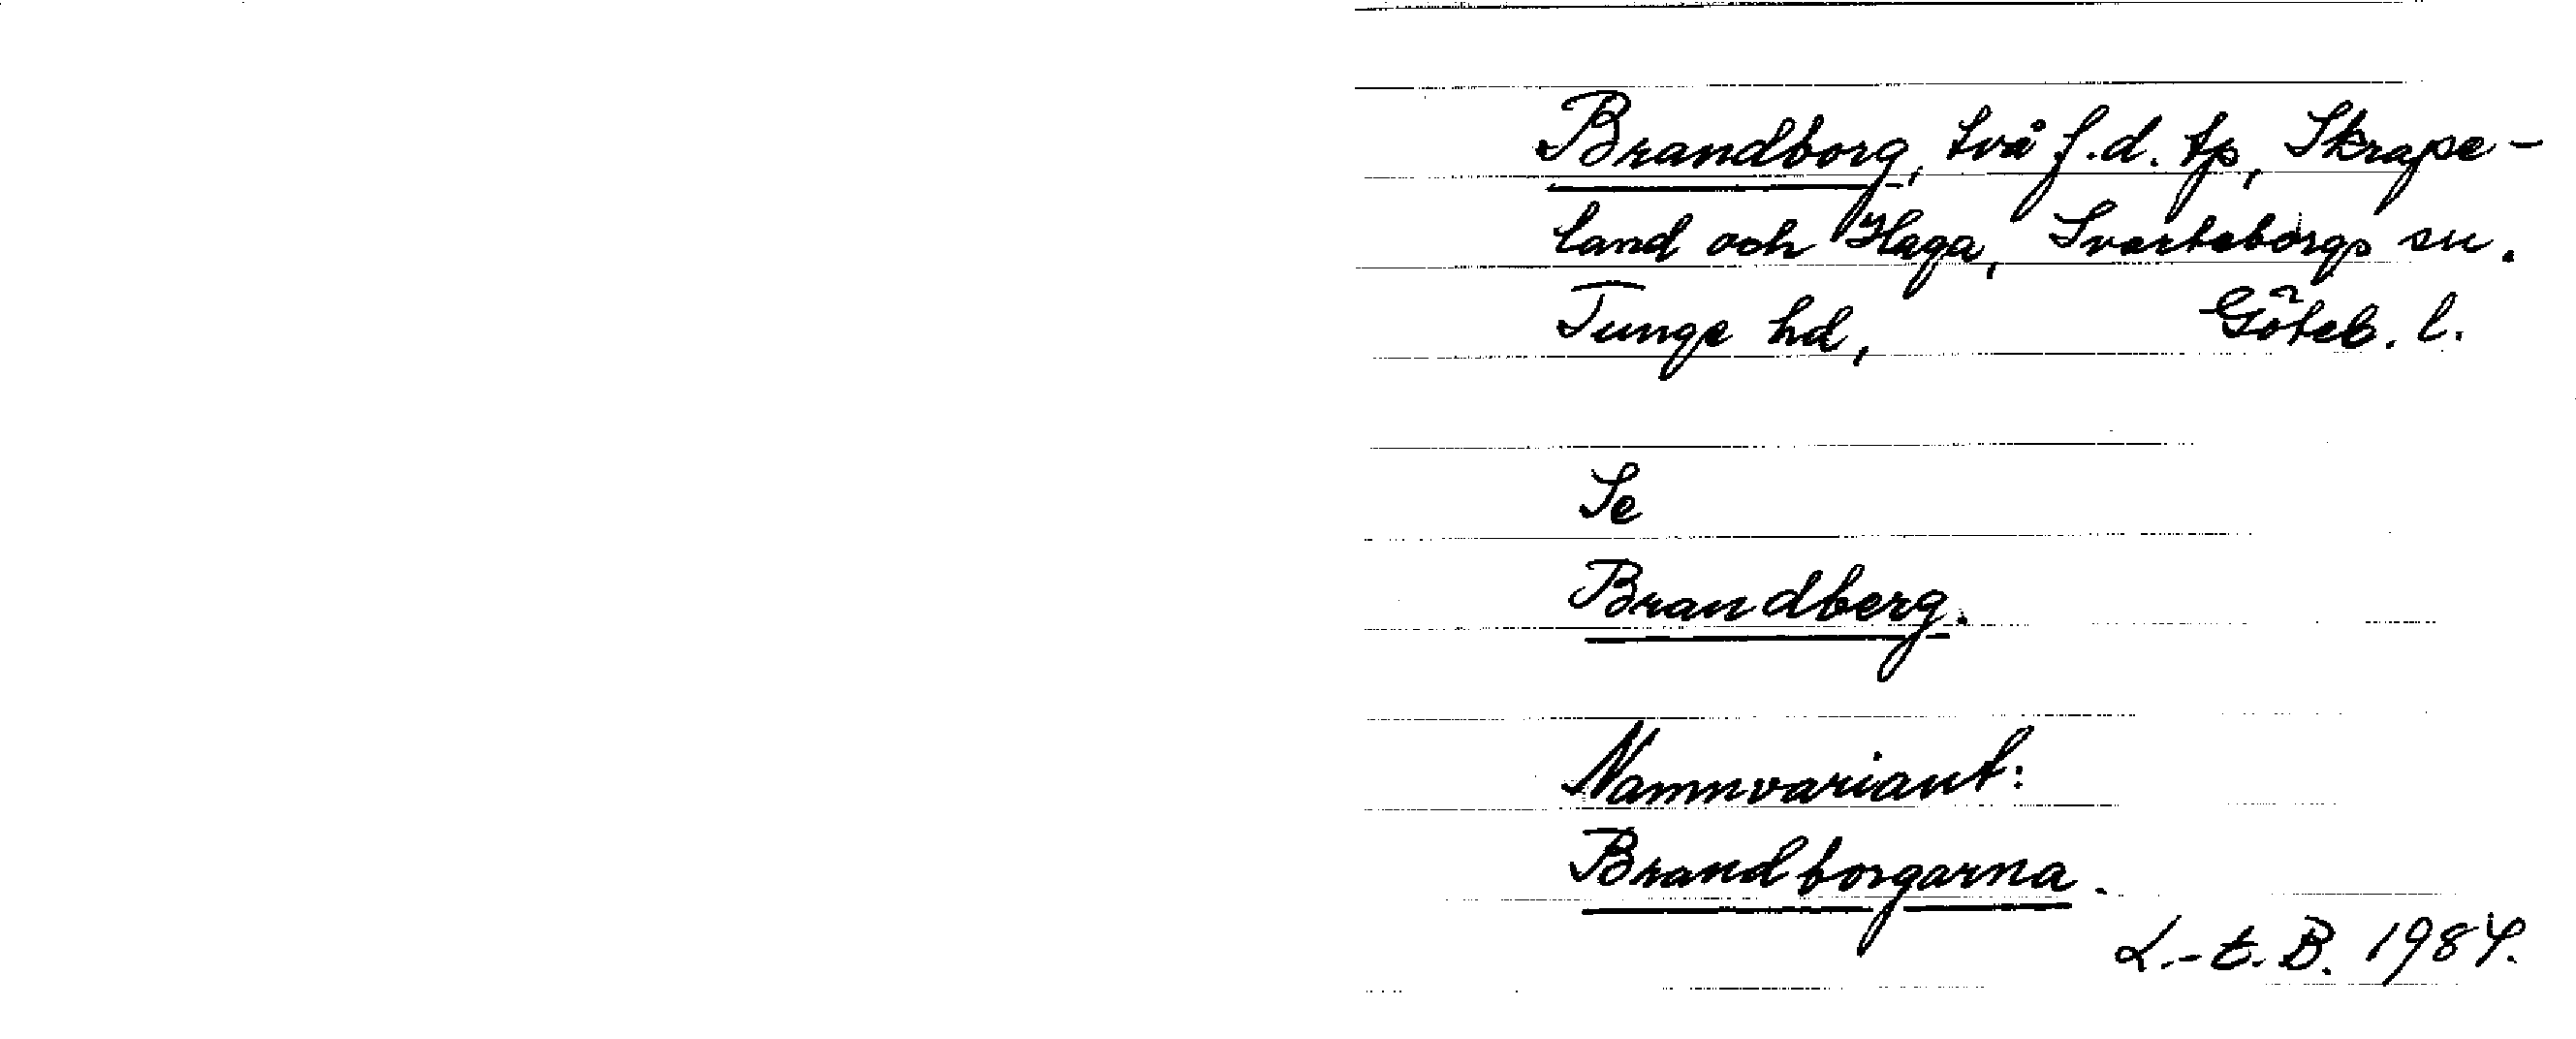 Brandborg, två f.d. tp, Skrape-
land och Haga, Svarteborgs sn.
Tunge hd, Göteb. l.
Se
Brandberg.
Namnvariant:
Brandborgarna.
L.-t. B. 1984.